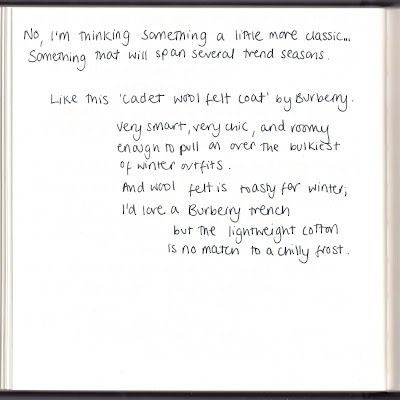 No, I'm thinking something a little more classic...
Something that will span several trend seasons.
Like this 'cadet wool felt coat' by Burberry.
very smart, very chic, and roomy
enough to pull on over the bulkiest
of winter outfits.
And wool felt is toasty for winter;
I'd love a Burberry trench
but the lightweight cotton
is no match to a chilly frost.